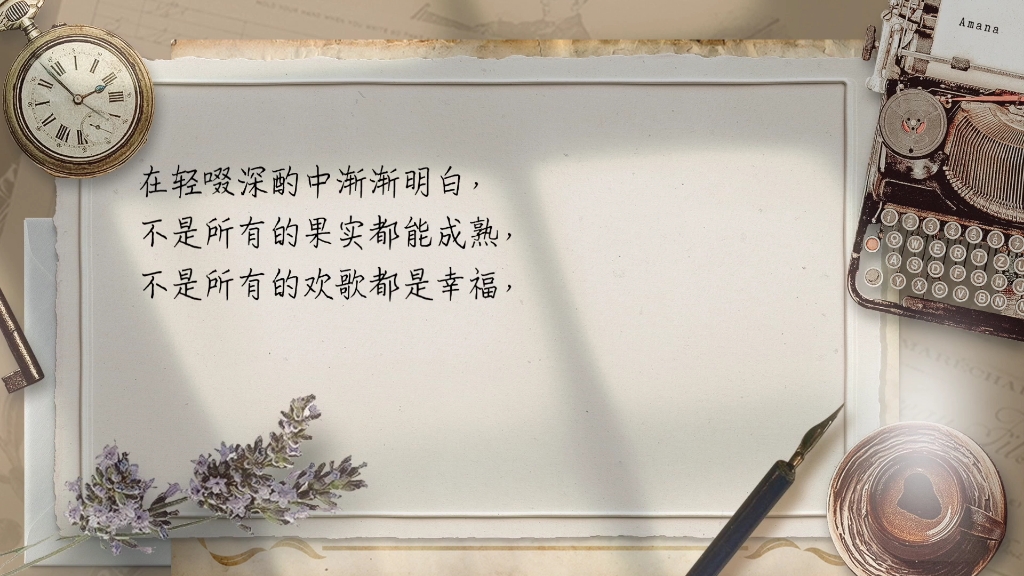 Amana
在轻啜深酌中渐渐明白，
不是所有的果实都能成熟，
不是所有的欢歌都是幸福，